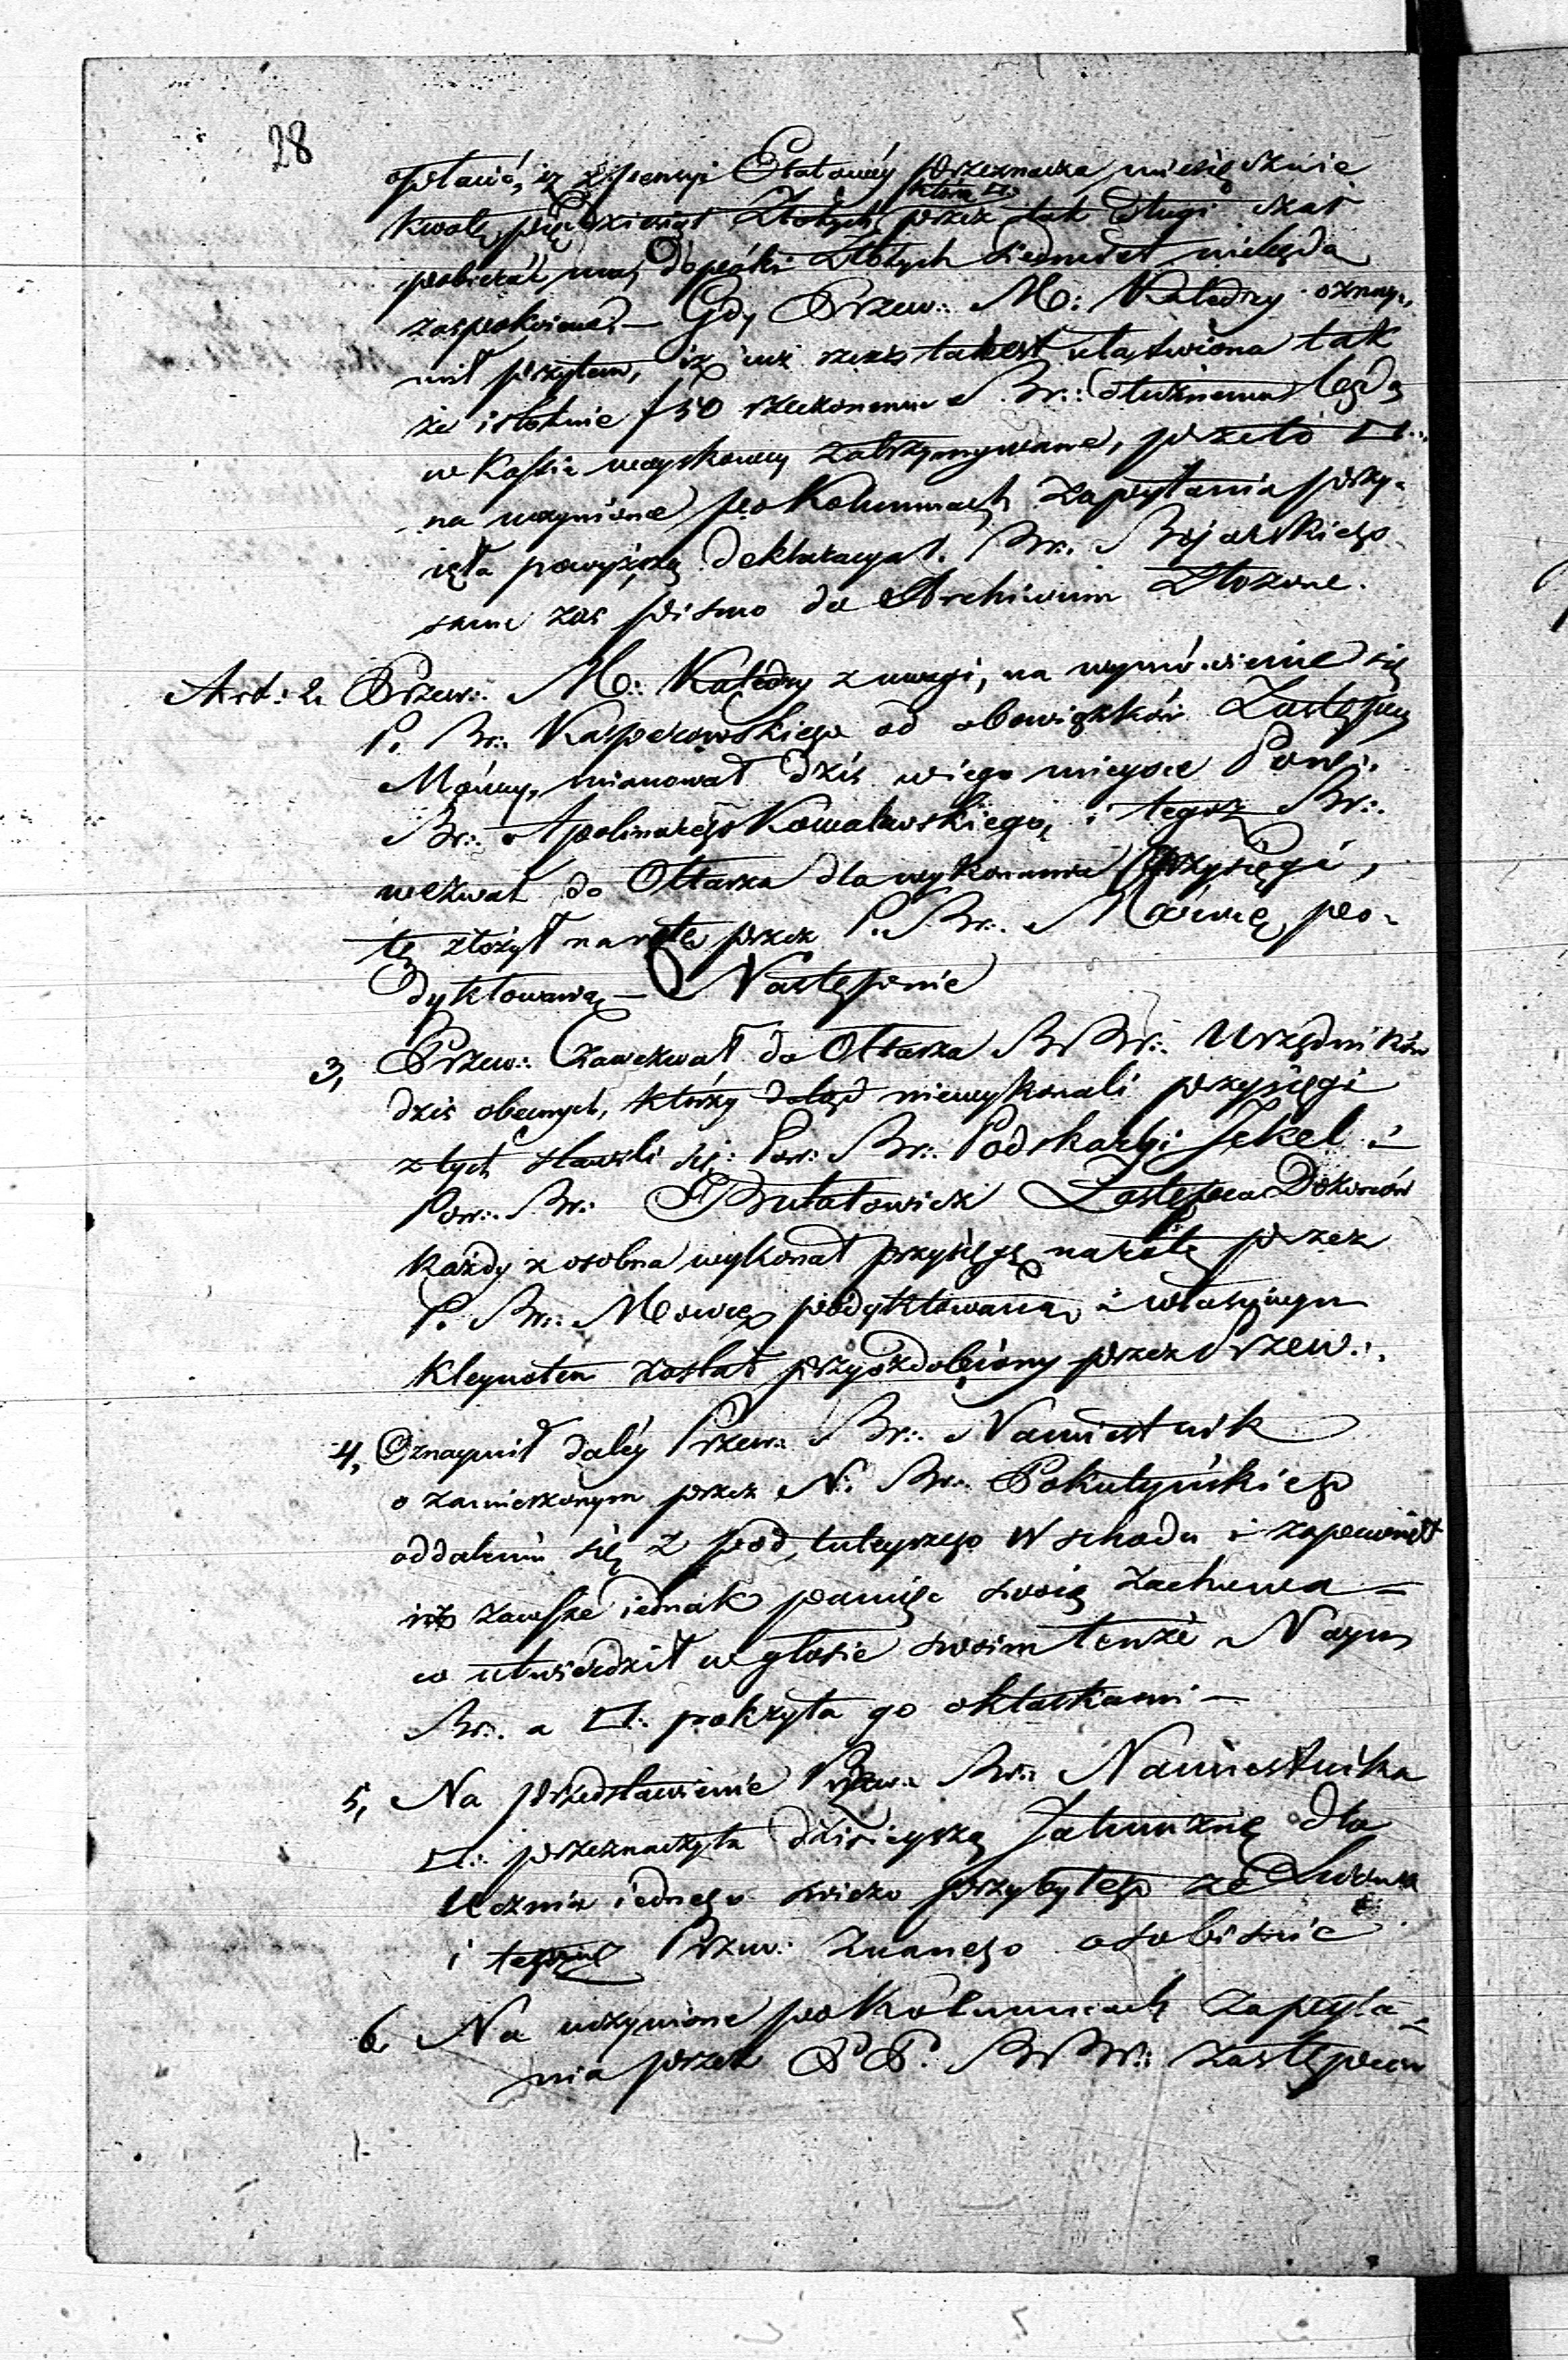 28
opłacić, iż z pensyi Etatowéy przeznacza miesięcznie
która □.:
kwotę pięćdziesiąt Złotych, przez tak długi czas
pobierać ma, dopóki Złotych siedmset niebędą
zaspokoione. — Gdy Przew.: M.: Katedry oznay-
mił przytem, iż iuż rzecz ta iest ułatwiona tak
że istotnie f 50 rzeczonemu Br.: Służącemu będą
w Kassie woyskowey zatrzymywane, przeto □.:
na uczynione po Kolumnach zapytania przy-
ięła powyższą deklaracyą P. Br. Bojarskiego
same zaś pismo do Archiwum złożone.
Art: 2. Przew.: M.: Katedry z uwagi, na wymówienie się
P. Br.: Kasperowskiego od obowiązków Zastępcy
Mówcy, mianował dziś w iego mieysce Pow.:
Br.: Apolinarego Kowalewskiego, i tegoż Br.:
wezwał do Ołtarza dla wykonania Przysięgi,
tę złożył na rotę przez P. Br.: Mówcę po-
dyktowaną — Następnie
3, Przew.: zawezwał do Ołtarza BrBr.: Urzędników
dziś obecnych, którzy dotąd niewykonali przysięgi
z tych stawili się: Pow.: Br.: Podskarbi Jekel i
Pow.: Br.: Bułatowicz Zastępca Dozorców
każdy z osobna wykonał przysięgę na rotę przez
P. Br.: Mowcę podyktowaną i właściwym
kleynotem został przyozdobiony przez Przew.:
4, Oznaymił daléy Przew.: Br.: Namiestnik
o zamierzonym przez N.: Br.: Pokutyńskiego
oddaleniu się z pod tuteyszego Wschodu i zapewnił
iż zawsze iednak pamięć swoią zachowa —
co utwierdził w głosie swoim tenże Nayw
Br.: a □.: pokryła go oklaskami —
5, Na przedstawienie Przew.: Br.: Namiestnika
□.: przeznaczyła dzisieyszą Jałmużnę dla
Ucznia iednego świeżo przybyłego ze Lwowa
i tegoż Przew.: znanego osobiście
6, Na uczynione po Kolumnach zapyta-
nia przez PP. BrBr.: Zastępców